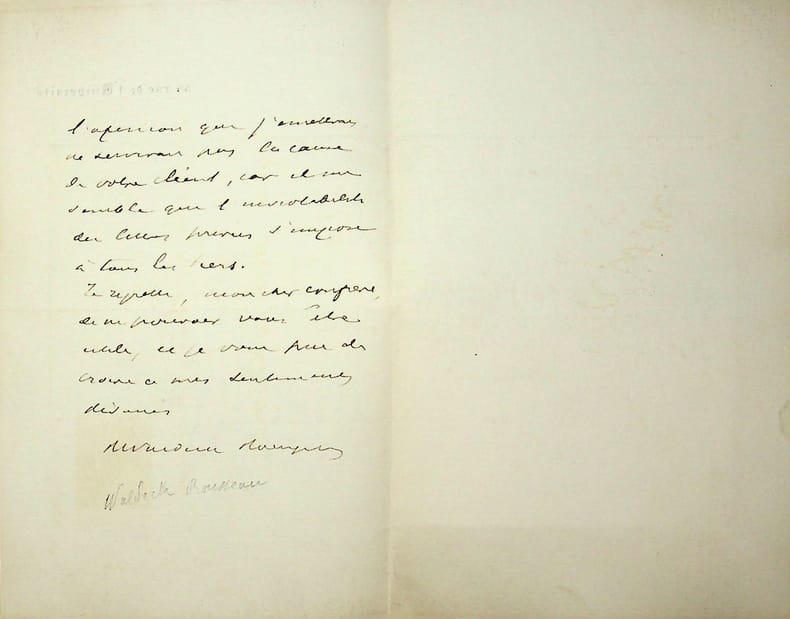 l'opinion que j'émettrais
ne servirait pas la cause
de votre client, car il me
semble que l'inviolabilité
des lettres privées s'impose
à tous les tiers.
Je regrette, mon cher confrère,
de ne pouvoir vous être
utile, et je vous prie de
croire à mes sentiments
dévoués
Waldeck Rousseau